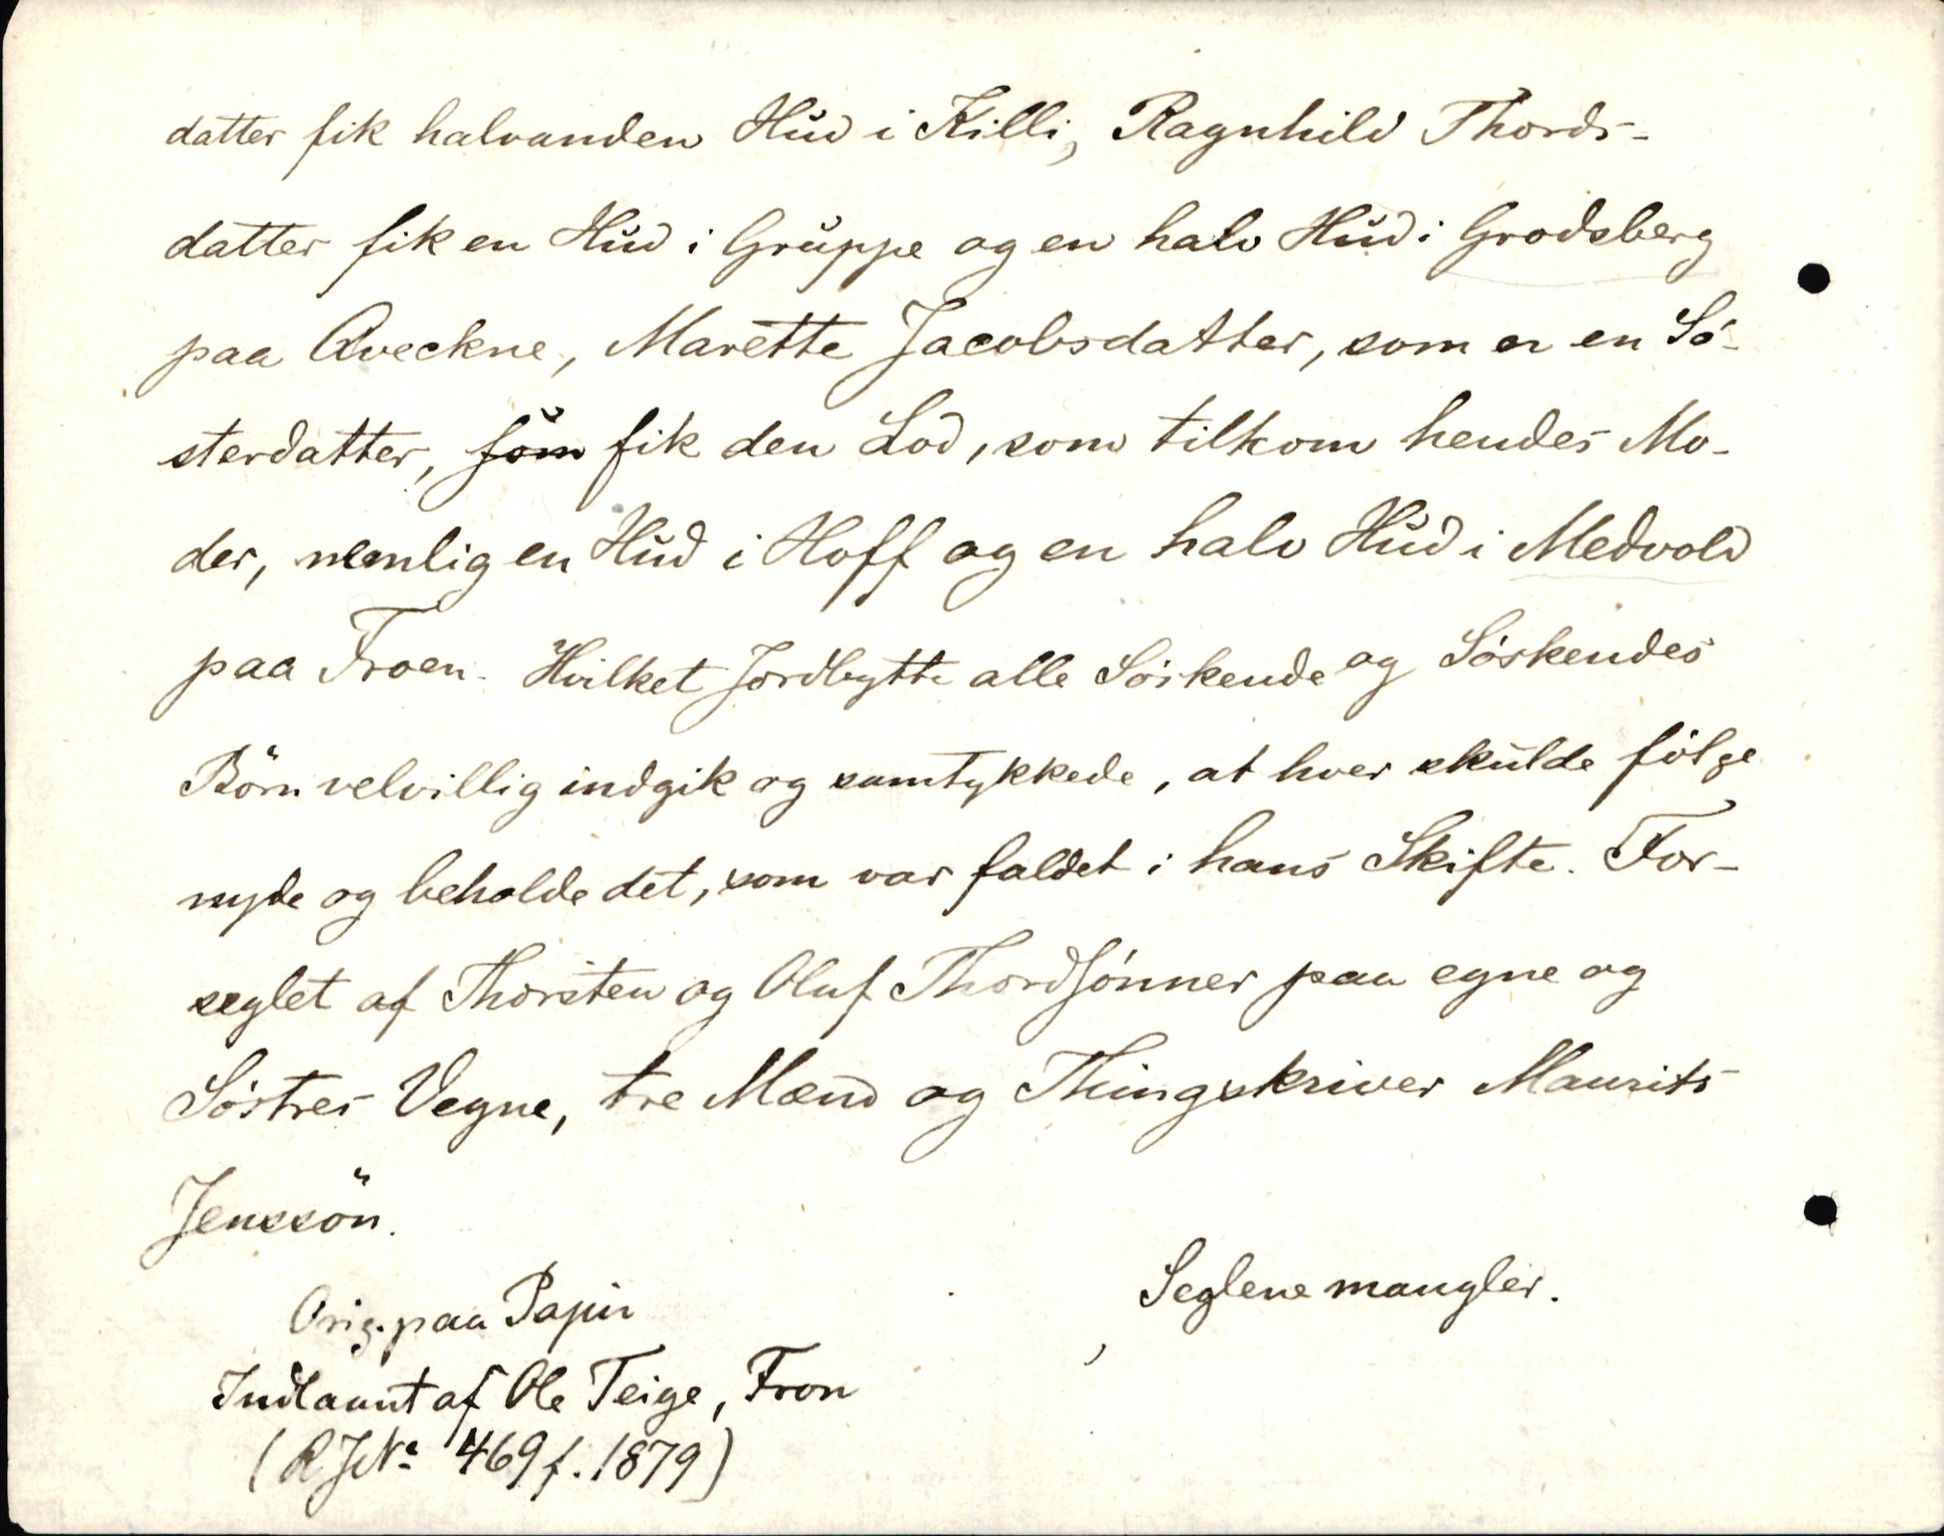 datter fik halvanden Hud i Killi, Ragnhild Thords-
datter fik en Hud i Gruppe og en halv Hud i Grodsberg
paa Qveckne, Marette Jacobsdatter, som er en Sö-
sterdatter, som fik den Lod, som tilkom hendes Mo-
der, nemlig en Hud i Hoff og en halv Hud i Medvold
paa Froen. Hvilket Jordbytte alle Söskende og Söskendes
Börn velvillig indgik og samtykkede, at hver skulde fölge
nyde og beholde det, som var faldet i hans Skifte. For-
seglet af Thorsten og Oluf Thordsönner paa egne og
Söstres Vegne, tre Mænd og Thingskriver Maurits
Jenssön.
Orig. paa Papir
Seglene mangler.
Indlaant af Ole Teige, Fron
(RJNo 469 f. 1879)